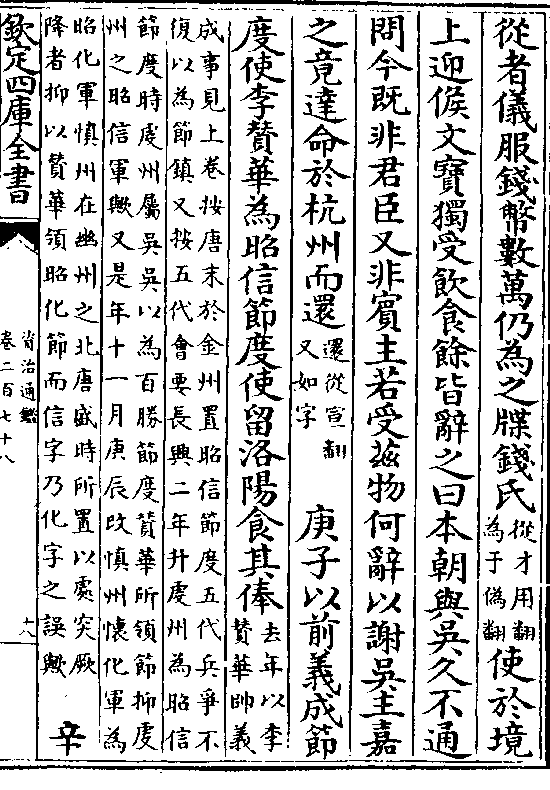 從者儀服錢幣數萬仍為之牒錢氏從才用翻為于偽翻使於境
上迎候文寶獨受飲食餘皆辭之曰本朝與吳久不通
問今既非君臣又非賓主若受茲物何辭以謝吳主嘉
之竟達命於杭州而還還從宣翻又如字 庚子以前義成節
度使李贊華為昭信節度使留洛陽食其俸去年以李贊華帥義
成事見上卷按唐末於金州置昭信節度五代兵爭不
復以為節鎮又按五代會要長興二年升虔州為昭信
節度時虔州屬吳吳以為百勝節度贊華所領節抑虔
州之昭信軍歟又是年十一月庚辰改慎州懷化軍為
昭化軍慎州在幽州之北唐盛時所置以處突厥
降者抑以贊華領昭化節而信字乃化字之誤歟 辛
欽定四庫全書
資治通鑑
卷二百七十八
十八